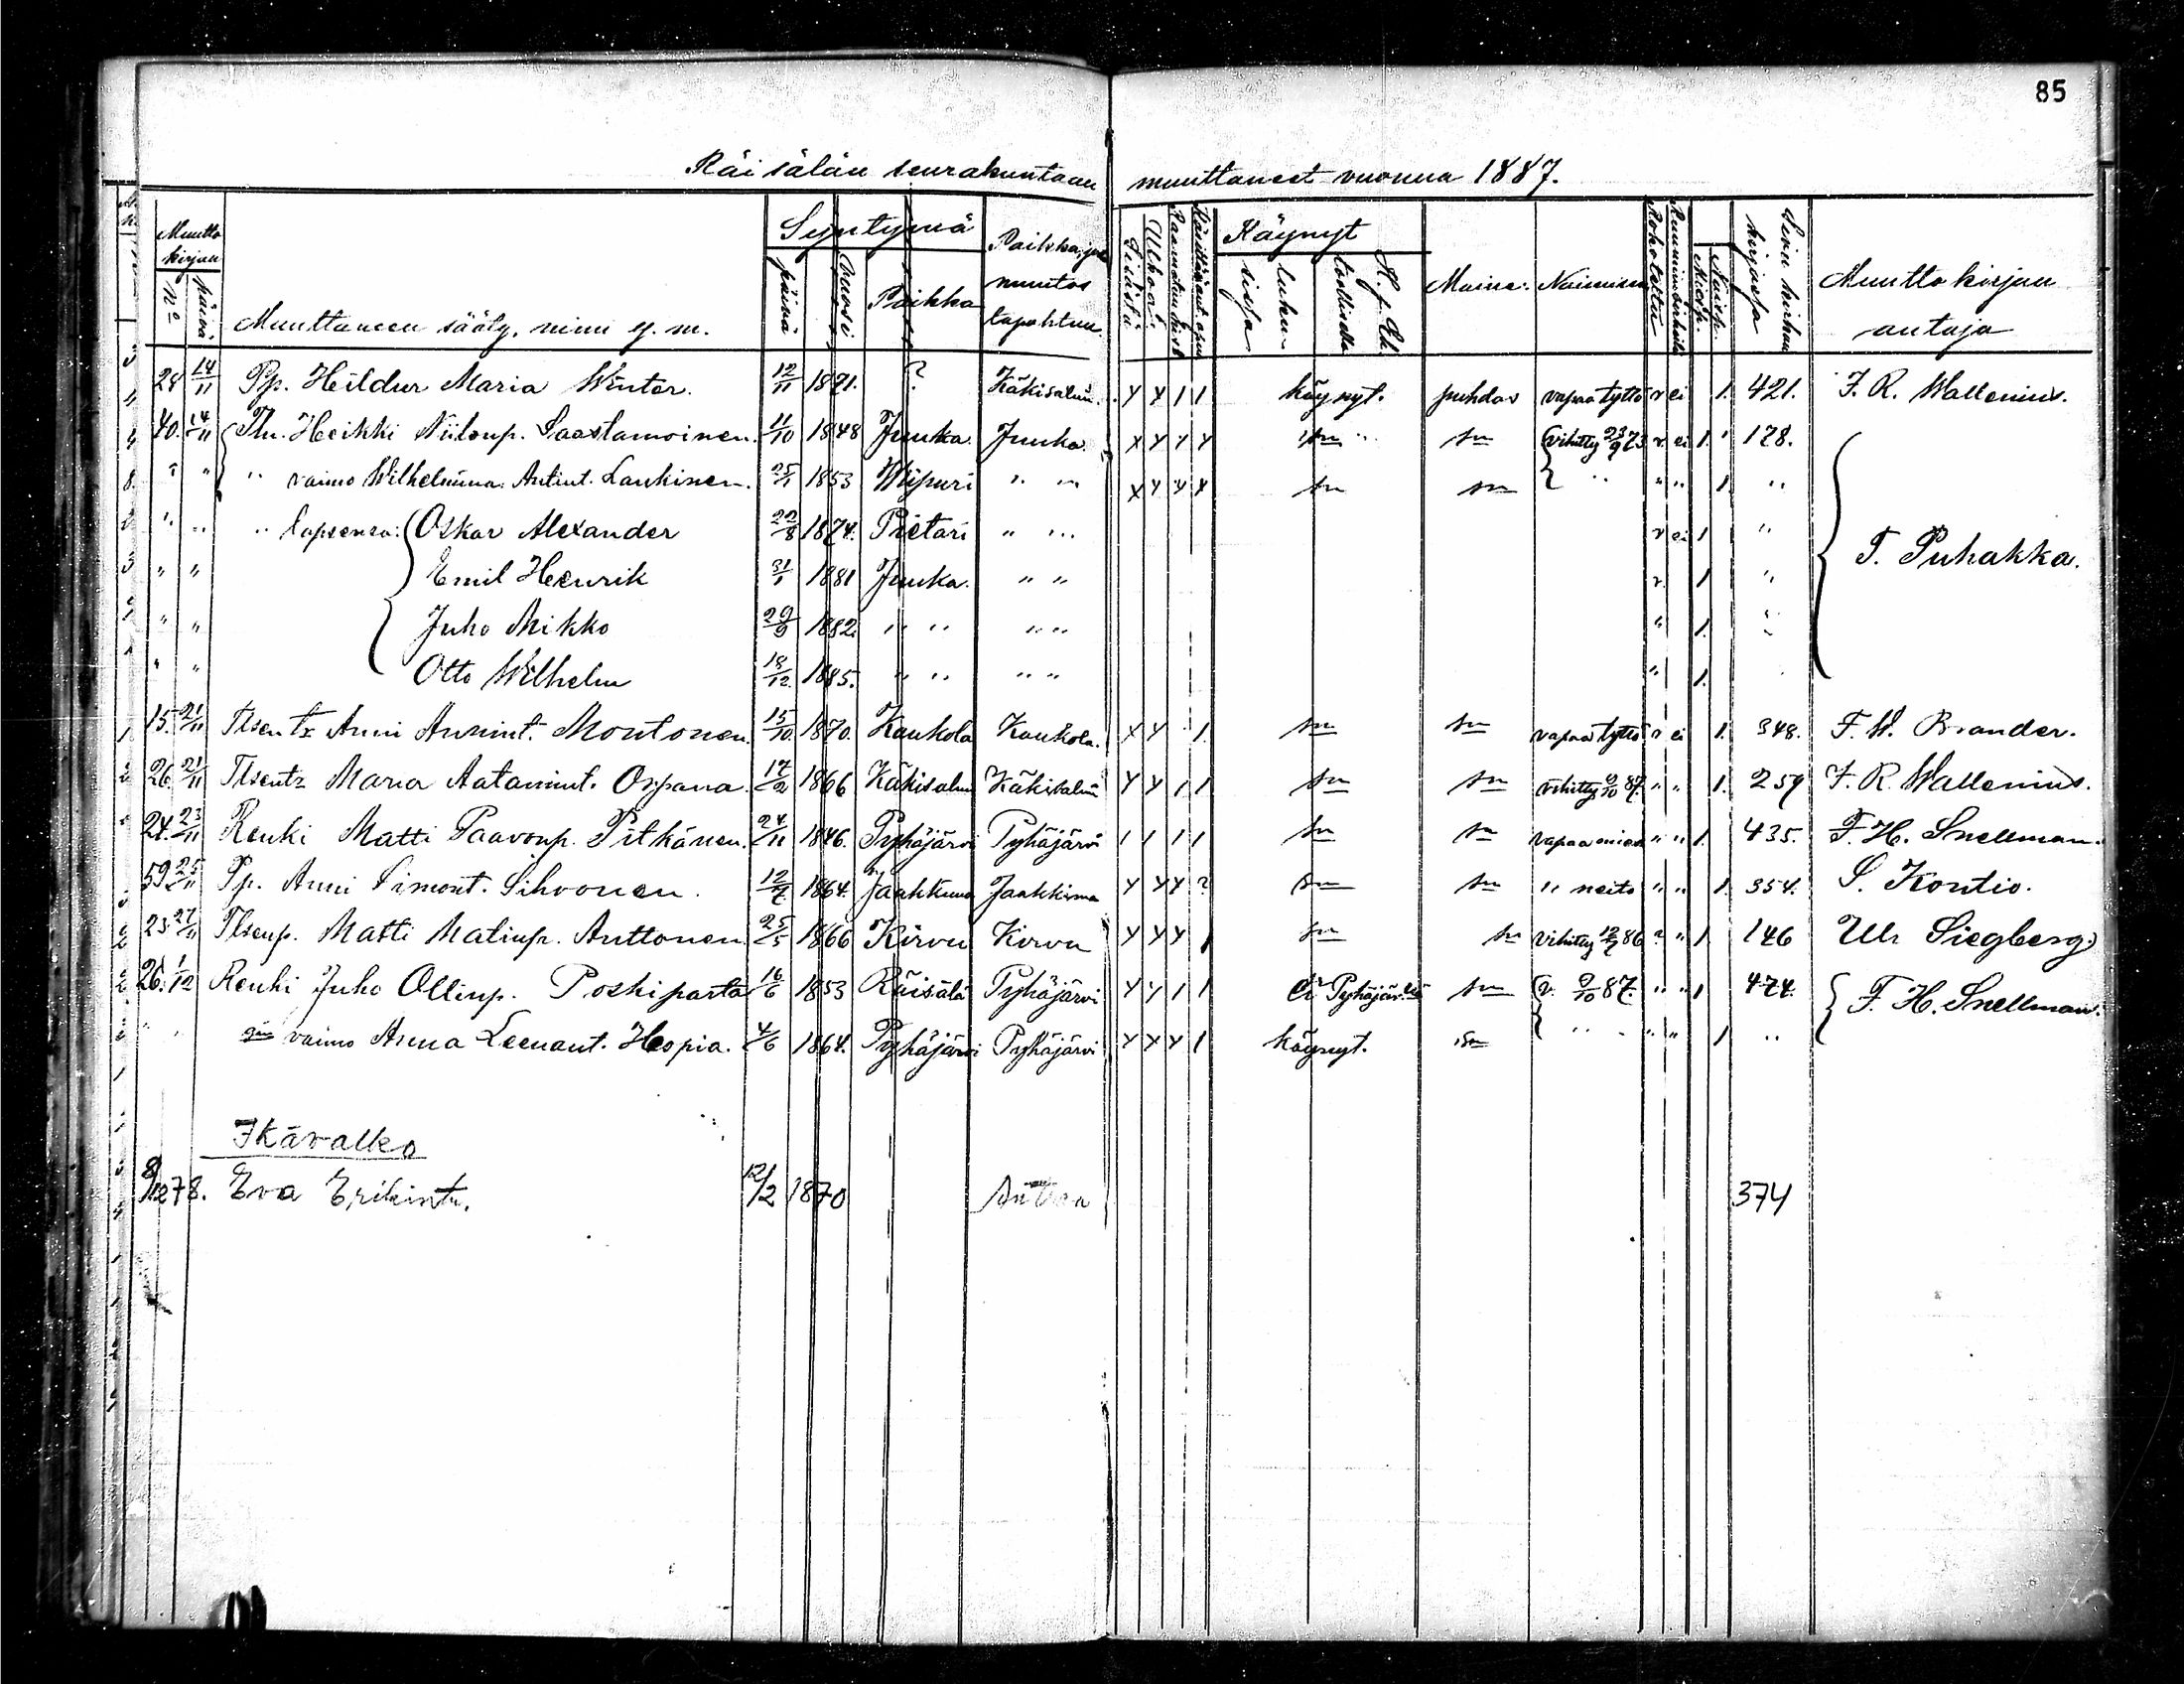 85
Räisälän seurakuntaan muuttaneet vuonna 1887.
Muutto kirjan Syntymä Paikka, jos muutos tapahtuu. Käynyt
No päivä. Muuttaneen sääty, nimi y. m. päivä vuosi Paikka Sisästä Ulkoa luku sija H. p. Eht. Maine. Rokotettu Miesp. Naisp. Sivu kirkon kirjassa Muuttokirjan antaja
28 14/11 Pp. Heildur Maria Winter. 12/11 1871. ? Käkisalmi. Y Y 1 1 käynyt. puhdas vapaa tyttö r ei 1. 421. F. R. Wallenius.
40. 14/11 Heikki Niilonp. Saastamoinen. 11/10 1848 Juuka Juuka. X Y Y Y sn sn vihitty 23/9 73 r ei 1 178.
" " " vaimo Wilhelmina Antint. Laukinen. 25/1 1853 Wipuri " " X Y Y Y sn sn " " " 1 "
" " " lapsensa: Oskar Alexander 22/8 1874. Pietari " " r ei 1 " T. Puhakka.
" " Emil Henrik 31/1 1881 Juuka. " " r. 1 "
" " Juho Mikko 29/9 1882. " " " " " 1. "
" " Otto Wilhelm 18/12. 1885. " " " " " 1.
15. 21/11 Tlsentr Anni Annint. Montonen. 15/10 1870. Kaukola Kaukola. X Y 1 sn sn vapaa tyttö r ei 1. 348. F. W. Brander.
26. 21/11 Tlsentr Maria Aatamint. Orpana. 17/2 1866 Käkisalmi Käkisalmi Y Y 1 1 sn sn vihitty 9/10 87. " " 1. 259 F. R. Wallenius.
24. 23/11 Renki Matti Paavonp. Pitkänen. 24/11 1846. Pyhäjärvi Pyhäjärvi 1 1 1 1 sn sn vapaa mies " " 1. 435. F. H. Snellman.
59 25/11 Pp. Anni Simont. Sihvonen. 12/2 1864. Jaakkima Jaakkima Y Y Y ? sn sn " neito " " 1. 354. S. Kontio.
23. 27/11 Tlsenp. Matti Matinp. Anttonen 25/5 1866 Kirvu Kirvu Y Y Y 1 sn sn vihitty 12/9 86 ? " 1 146 Ulr Siegberg.
26. 1/12 Renki Juho Ollinp. Poskiparta 16/6 1853 Räisälä Pyhäjärvi Y Y 1 1 Ei Pyhäjär. sn v. 9/10 87. " " 1 474. F. H. Snellman.
" " vaimo Anna Leenant. Hopia. 4/6 1864. Pyhäjärvi Pyhäjärvi Y Y Y 1 käynyt. sn " " " " 1 "
Ikävalko
8/12 78. Eva Erikintr. 12/2 1870 374